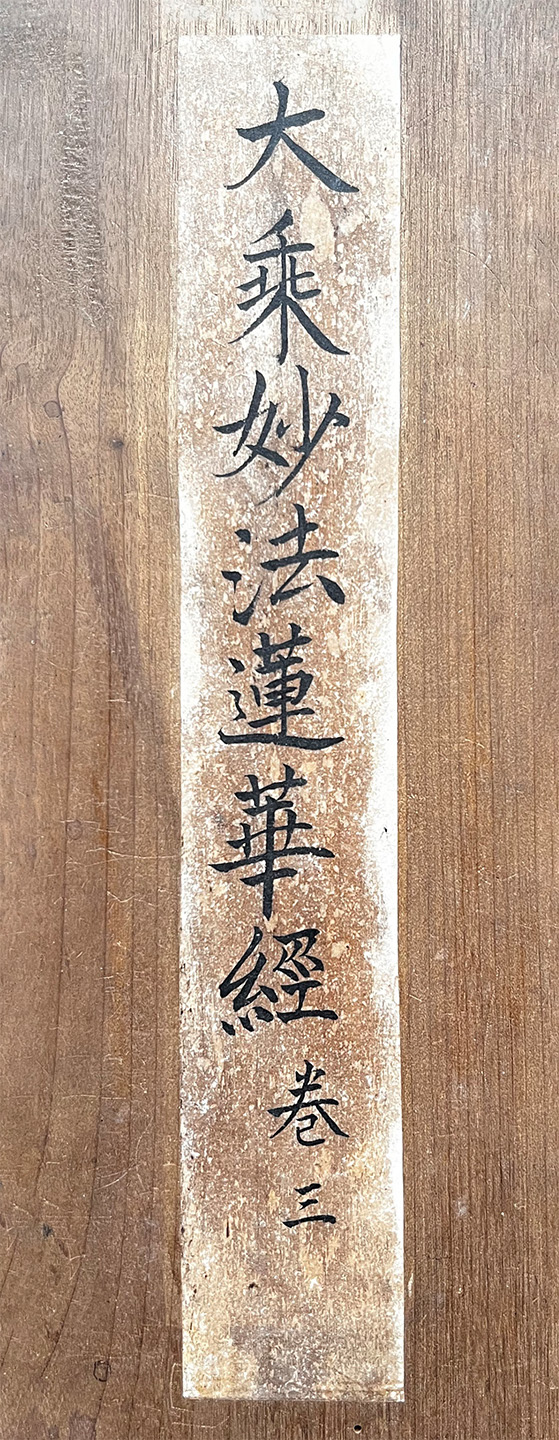 大乘妙法蓮華經卷三